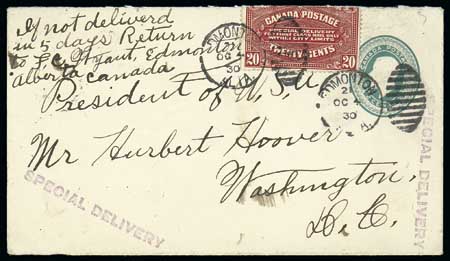 If not deliverd
in 5 days Return
to F.C. Edmonton
Alberta Canada
CANADA POSTAGE
SPECIAL DELIVERY
WITHIN CITY LIMITS
TWENTY CENTS
20 20
EDMONTON
OC 4
30
ALTA.
EDMONTON
21
OC 4
30
President of U.S.A
Mr Hurbert Hoover
Washington
D.C.
SPECIAL DELIVERY
SPECIAL DELIVERY